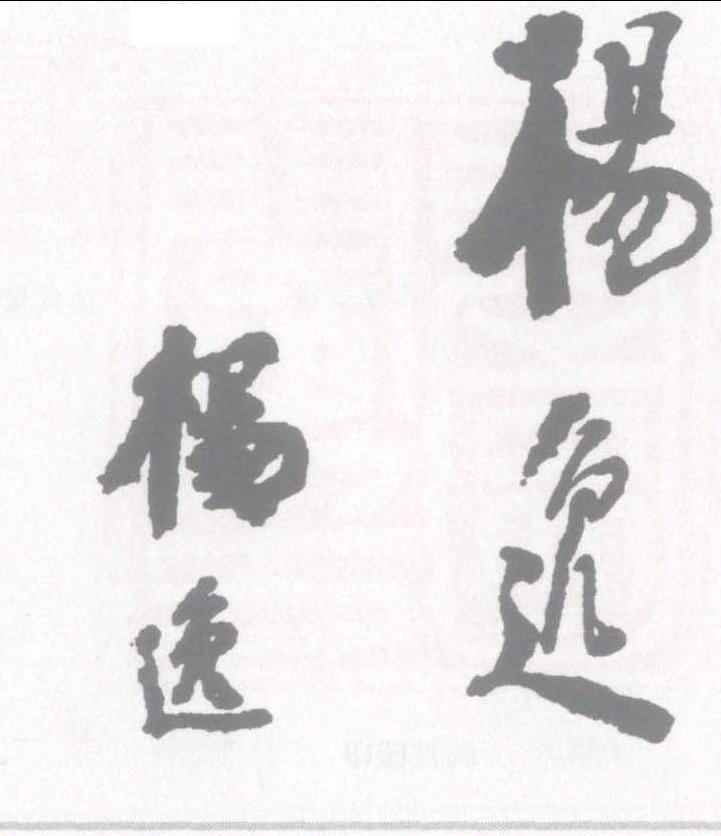 楊逸
楊逸